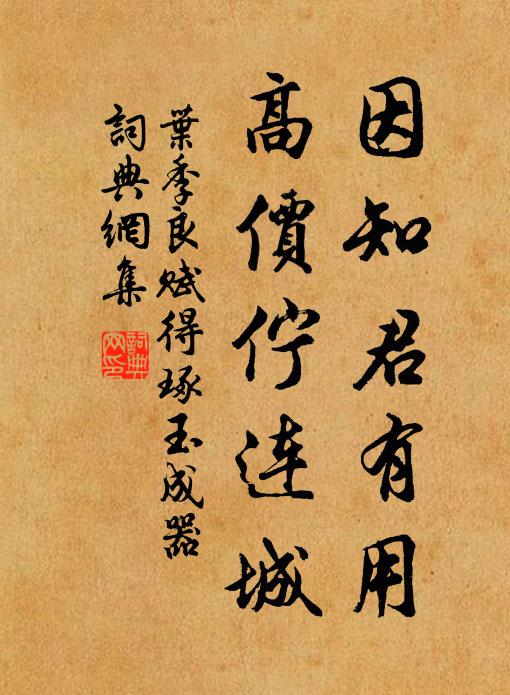 因知君有用
高價佇连城
葉季良赋得琢玉成器
詞典網集
詞典
网印